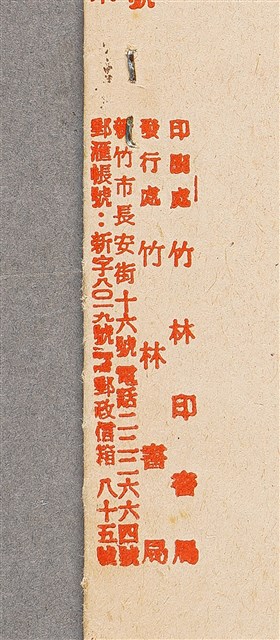 號
印刷處 竹林印書局
發行處 竹林書局
新竹市長安街十六號 電話二二二六六四號
郵滙帳號：新字八〇一九號 郵政信箱 八十五號